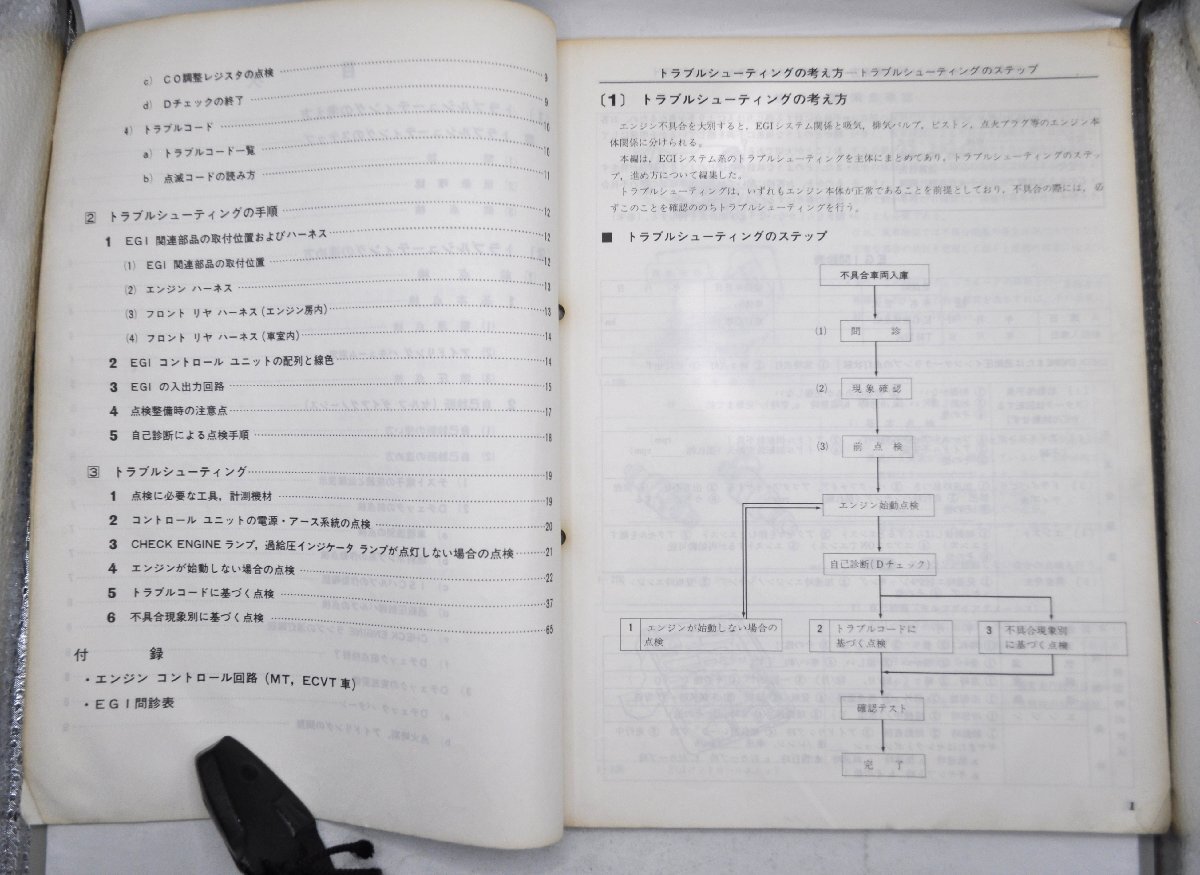 c) CO調整レジスタの点検 9
d) Dチェックの終了 9
4) トラブルコード 10
a) トラブルコード一覧 10
b) 点滅コードの読み方 11
2 トラブルシューティングの手順 12
1 EGI 関連部品の取付位置およびハーネス 12
(1) EGI 関連部品の取付位置 12
(2) エンジン ハーネス 13
(3) フロント リヤ ハーネス(エンジン房内) 13
(4) フロント リヤ ハーネス(車室内) 14
2 EGI コントロール ユニットの配列と線色 14
3 EGI の入出力回路 15
4 点検整備時の注意点 17
5 自己診断による点検手順 18
3 トラブルシューティング 19
1 点検に必要な工具，計測機材 19
2 コントロール ユニットの電源・アース系統の点検 20
3 CHECK ENGINE ランプ，過給圧インジケータ ランプが点灯しない場合の点検 21
4 エンジンが始動しない場合の点検 22
5 トラブルコードに基づく点検 37
6 不具合現象別に基づく点検 65
付 録
・エンジン コントロール回路(MT，ECVT車)
・EGI問診表
トラブルシューティングの考え方―トラブルシューティングのステップ
〔1〕 トラブルシューティングの考え方
エンジン不具合を大別すると，EGIシステム関係と吸気，排気バルブ，ピストン，点火プラグ等のエンジン本
体関係に分けられる。
本編は，EGIシステム系のトラブルシューティングを主体にまとめてあり，トラブルシューティングのステッ
プ，進め方について編集した。
トラブルシューティングは，いずれもエンジン本体が正常であることを前提としており，不具合の際には，必
ずこのことを確認ののちトラブルシューティングを行う。
■ トラブルシューティングのステップ
不具合車両入庫
(1) 問 診
(2) 現象確認
(3) 前点検
エンジン始動点検
自己診断(Dチェック)
1 エンジンが始動しない場合の
点検
2 トラブルコードに
基づく点検
3 不具合現象別
に基づく点検
確認テスト
完 了
1